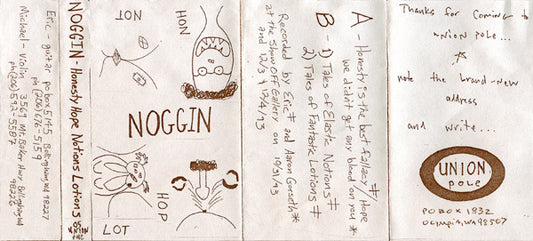 Eric - guitar po box 5145 Bellingham WA 98227
ph (206) 676-5159
Michael - violin 3569 Mt. Baker Hwy. Bellingham, WA
98226
ph (206) 592-5587
NOGGIN - Honesty Hope Notions Lotions
NOT
HON
NOGGIN
LOT
HOP
A - Honesty is the best Policy ‡ Hope
we didn't get any blood on you *
B - 1) Tales of Elastic Notions ‡
2) Tales of Fantastic Lotions ‡
Recorded by Eric ‡ and Aaron Gorseth *
at the Show Off Gallery on 10/31/93
and 12/3 12/4/93
Thanks for coming to
union pole...
note the brand-new
address
and write...
UNION
pole
PO BOX 1932
OLYMPIA, WA 98507